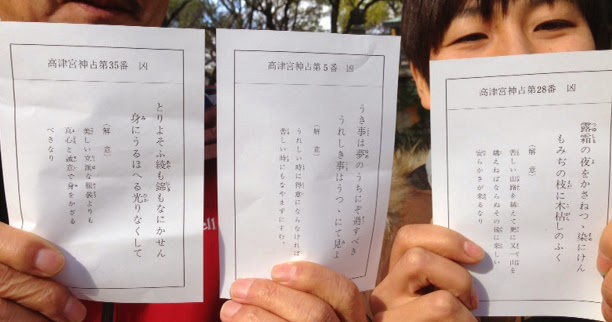 高津宮神占第35番 凶
とりよそふ綾も錦もなにかせん
身にうるほへる光りなくして
(解意)
美しい立派な服装よりも
真心と誠意で身をかざる
べきなり
高津宮神占第5番 凶
うき事は夢のうちにぞ過すべき
うれしき事はうつゝにて見よ
(解意)
うれしい時に得意にならなければ
苦しい時にもなやまずにすむ。
高津宮神占第28番 凶
露霜の夜をかさねつゝ染にけん
もみぢの枝に木枯しのふく
(解意)
苦しい山路を越えて更に又一山を
越えねばならぬその後に楽しい
安らかさが来るなり